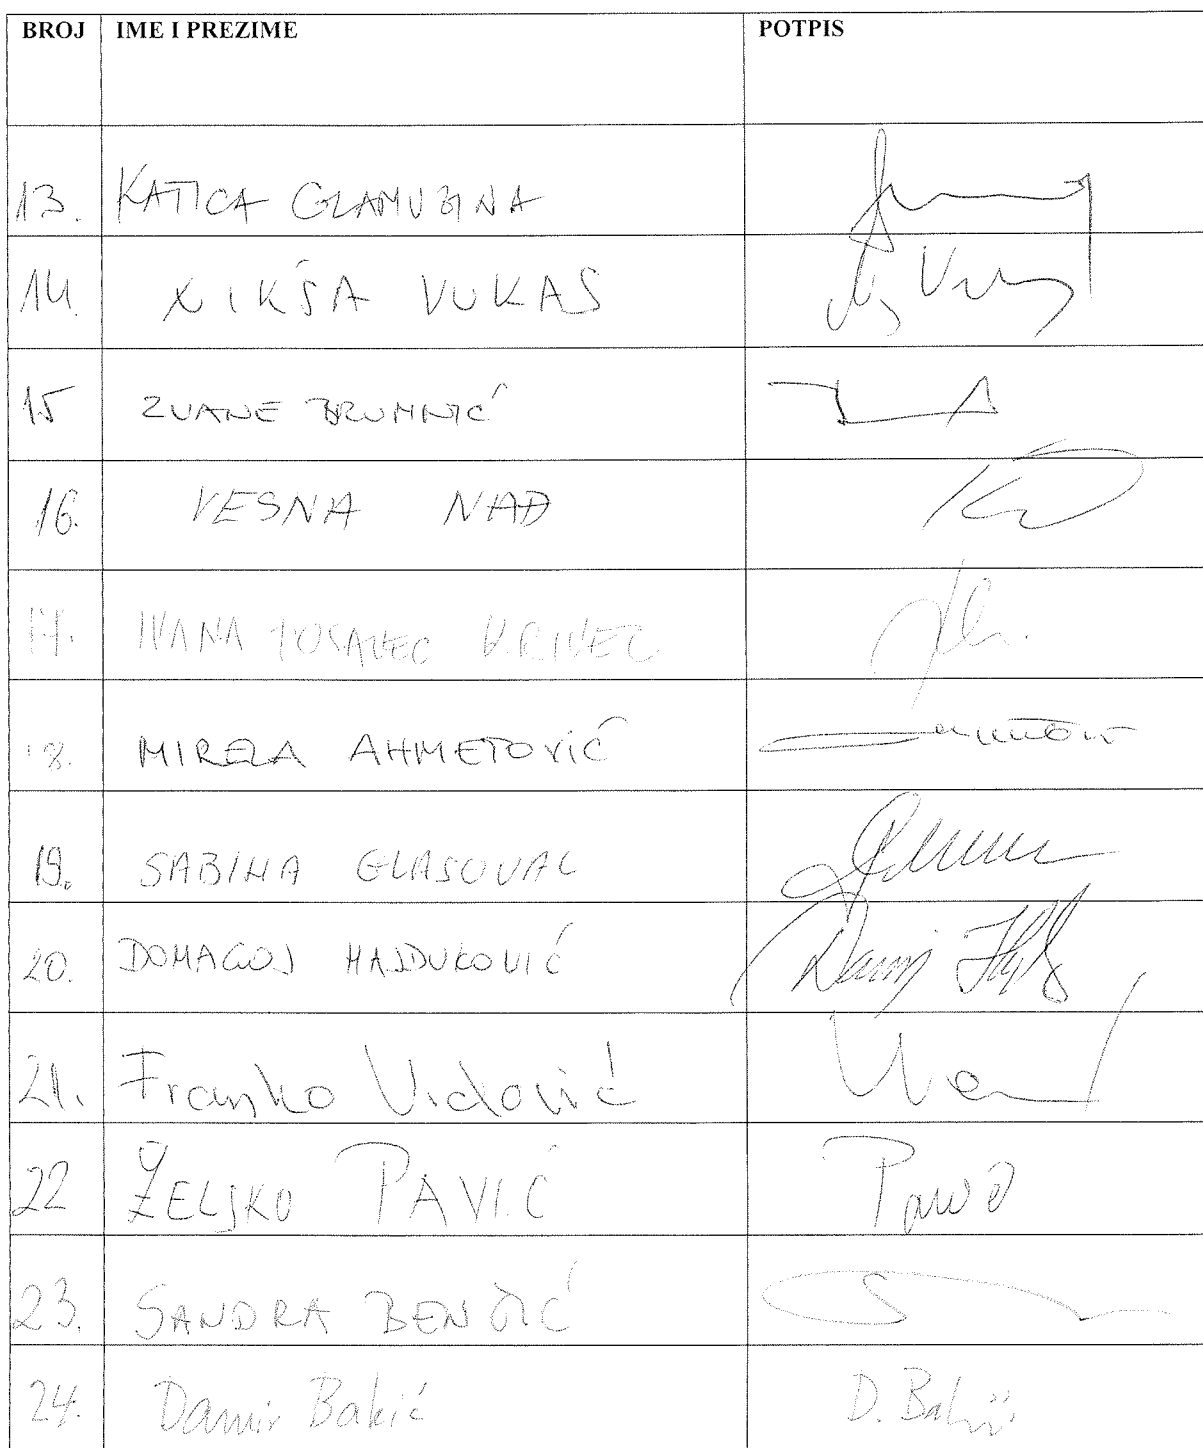 BROJ IME I PREZIME POTPIS
13. KATICA GLAMUZINA
14. NIKŠA VUKAS
15 ZVANE BRUMNIĆ
16. VESNA NAĐ
17. IVANA POSAVEC KRIVEC
18. MIRELA AHMETOVIĆ
19. SABINA GLASOVAC
20. DOMAGOJ HAJDUKOVIĆ
21. Franko Vidović
22 ŽELJKO PAVIĆ Pavić
23. SANDRA BENČIĆ
24. Damir Bakić D. Bakić